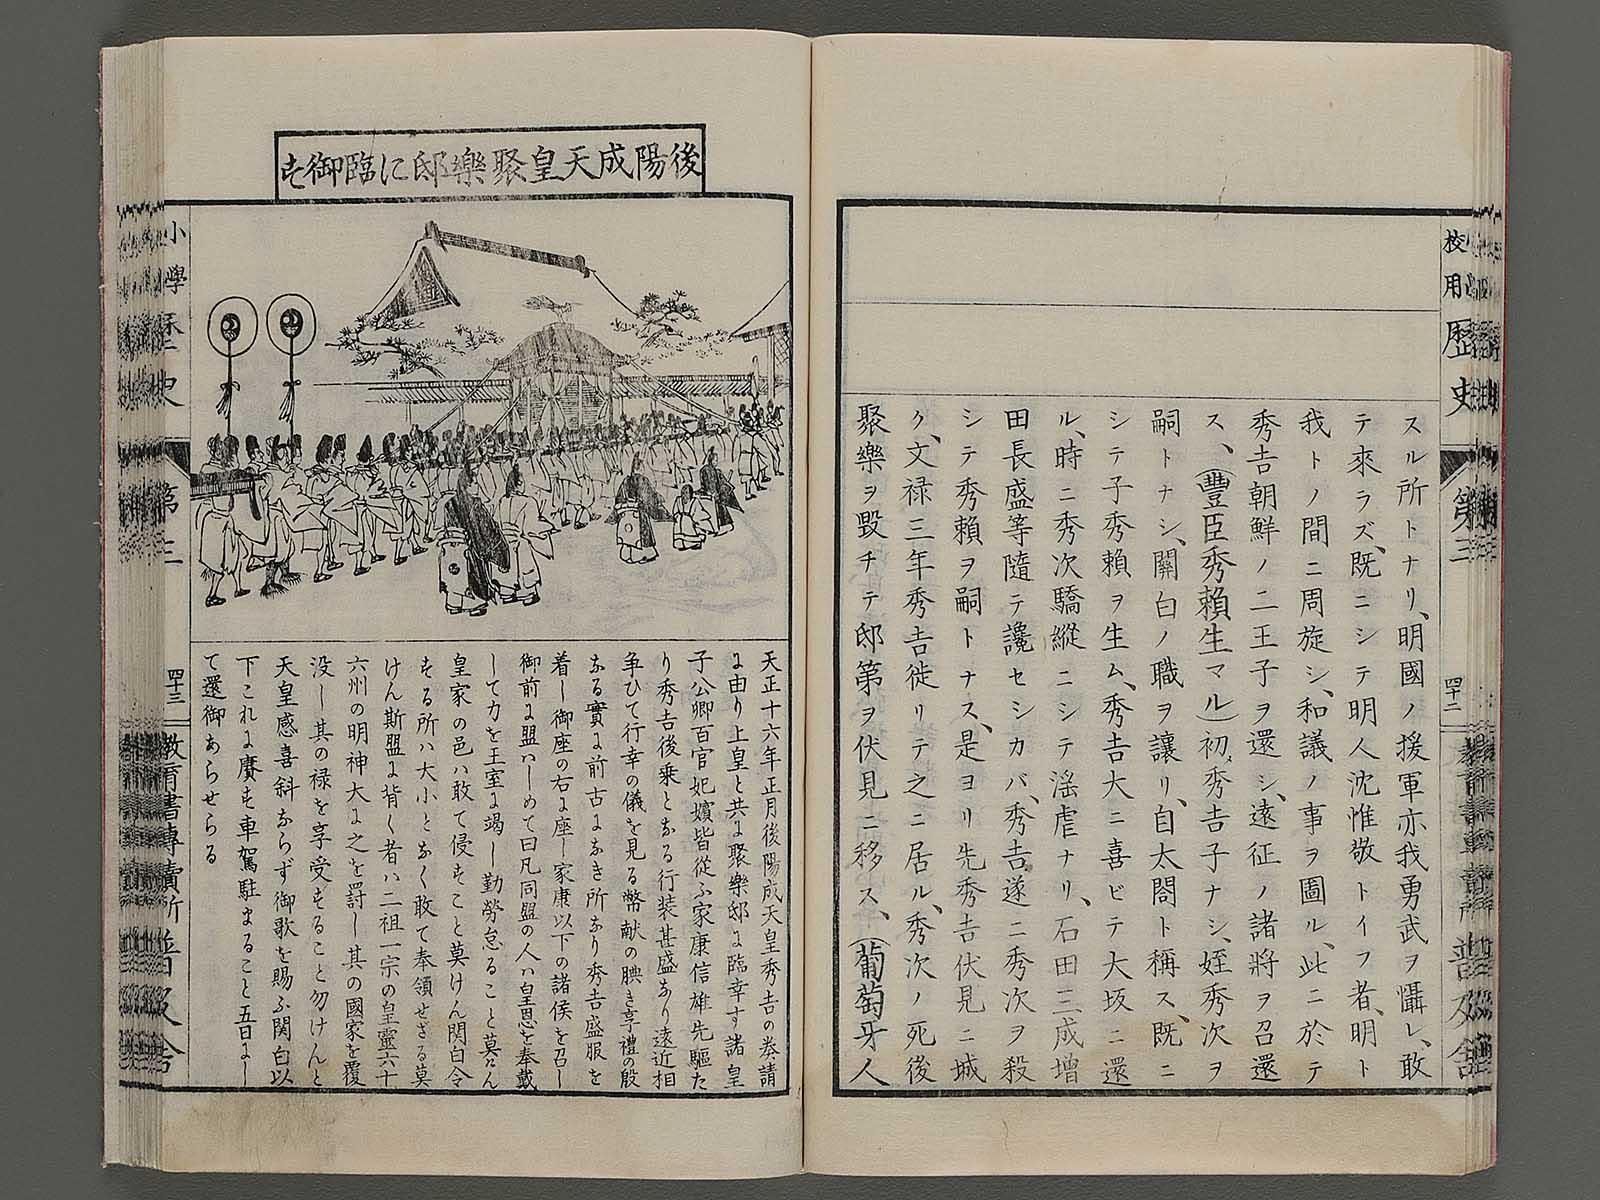 校用歴史
第三
四十二
普及舎
スル所トナリ、明國ノ援軍亦我勇武ヲ懾レ、敢
テ來ラズ、既ニシテ明人沈惟敬トイフ者、明ト
我トノ間ニ周旋シ、和議ノ事ヲ圖ル、此ニ於テ
秀吉朝鮮ノ二王子ヲ還シ、遠征ノ諸將ヲ召還
ス、(豐臣秀賴生マル)初、秀吉子ナシ、姪秀次ヲ
嗣トナシ、關白ノ職ヲ讓リ、自太閤ト稱ス、既ニ
シテ子秀賴ヲ生ム、秀吉大ニ喜ビテ大坂ニ還
ル、時ニ秀次驕縱ニシテ淫虐ナリ、石田三成增
田長盛等隨テ讒セシカバ、秀吉遂ニ秀次ヲ殺
シテ秀賴ヲ嗣トナス、是ヨリ先秀吉伏見ニ城
ク、文禄三年秀吉徙リテ之ニ居ル、秀次ノ死後
聚樂ヲ毀チテ邸第ヲ伏見ニ移ス、(葡萄牙人
後陽成天皇聚樂邸に臨御す
天正十六年正月後陽成天皇秀吉の奏請
に由り上皇と共に聚樂邸に臨幸す諸皇
子公卿百官妃嬪皆從ふ家康信雄先驅た
り秀吉後乗となる行装甚盛なり遠近相
争ひて行幸の儀を見る幣献の腆き享禮の殷
なる實に前古になき所なり秀吉盛服を
着し御座の右に座し家康以下の諸侯を召し
御前に盟はしめて曰凡同盟の人ハ皇恩を奉戴
して力を王室に竭し勤勞怠ること莫けん
皇家の邑ハ敢て侵すこと莫けん関白令
する所ハ大小となく敢て奉領せざる莫
けん斯盟に背く者ハ二祖一宗の皇靈六十
六州の明神大に之を罰し其の國家を覆
没し其の禄を享受すること勿けんと
天皇感喜斜ならず御歌を賜ふ関白以
下これに賡す車駕駐まること五日にし
て還御あらせらる
小學歴史
第三
四十三
教育書專賣所 普及舍